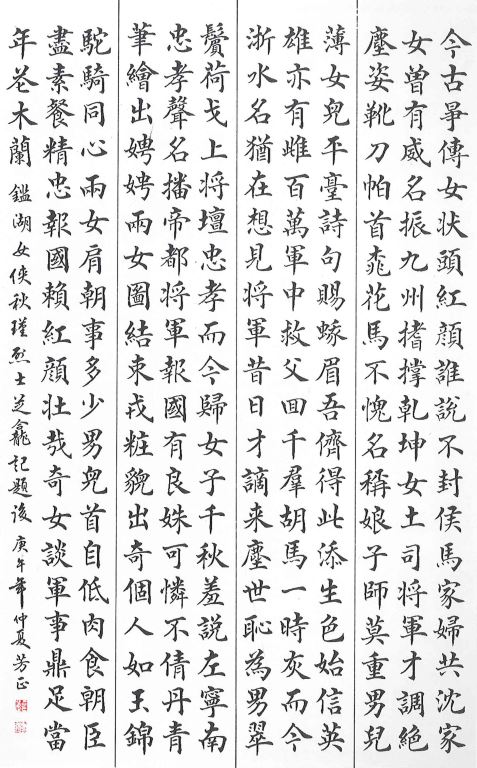 今古爭傳女狀頭紅顏誰說不封侯馬家婦共沈家
女曾有威名振九州搘撐乾坤女土司將軍才調絕
塵姿靴刀帕首桃花馬不愧名稱娘子師莫重男兒
薄女兒平臺詩句賜蛾眉吾儕得此添生色始信英
雄亦有雌百萬軍中救父回千羣胡馬一時灰而今
浙水名猶在想見將軍昔日才謫来塵世恥為男翠
鬢荷戈上將壇忠孝而今歸女子千秋羞說左寧南
忠孝聲名播帝都將軍報國有良姝可憐不倩丹青
筆繪出娉娉兩女圖結束戎粧貌出奇個人如玉錦
駝騎同心兩女肩朝事多少男兒首自低肉食朝臣
盡素餐精忠報國賴紅顏壯哉奇女談軍事鼎足當
年花木蘭 鑑湖女俠秋瑾烈士芝龕記題後 庚午年仲夏芳正